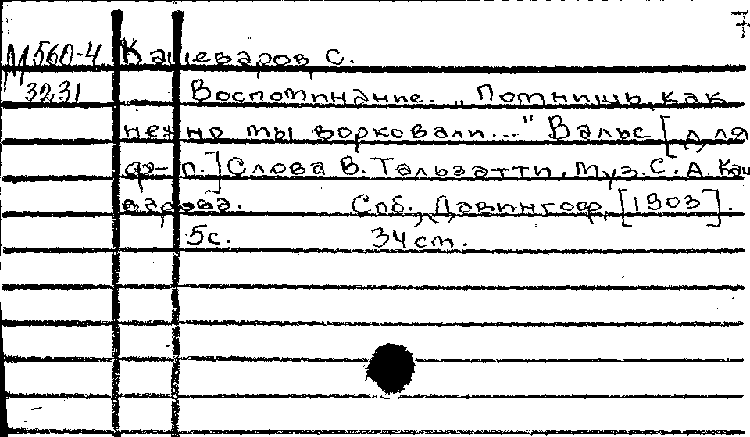 7
М560-4 Кашеваров С.
3231 Воспоминание. „Помнишь, как
нежно мы ворковали..." Вальс [для
ф-п.] Слова В. Тальзатти. Муз. С. А. Каш
варова. Спб., Давингоф, [1903].
5с. 34 см.